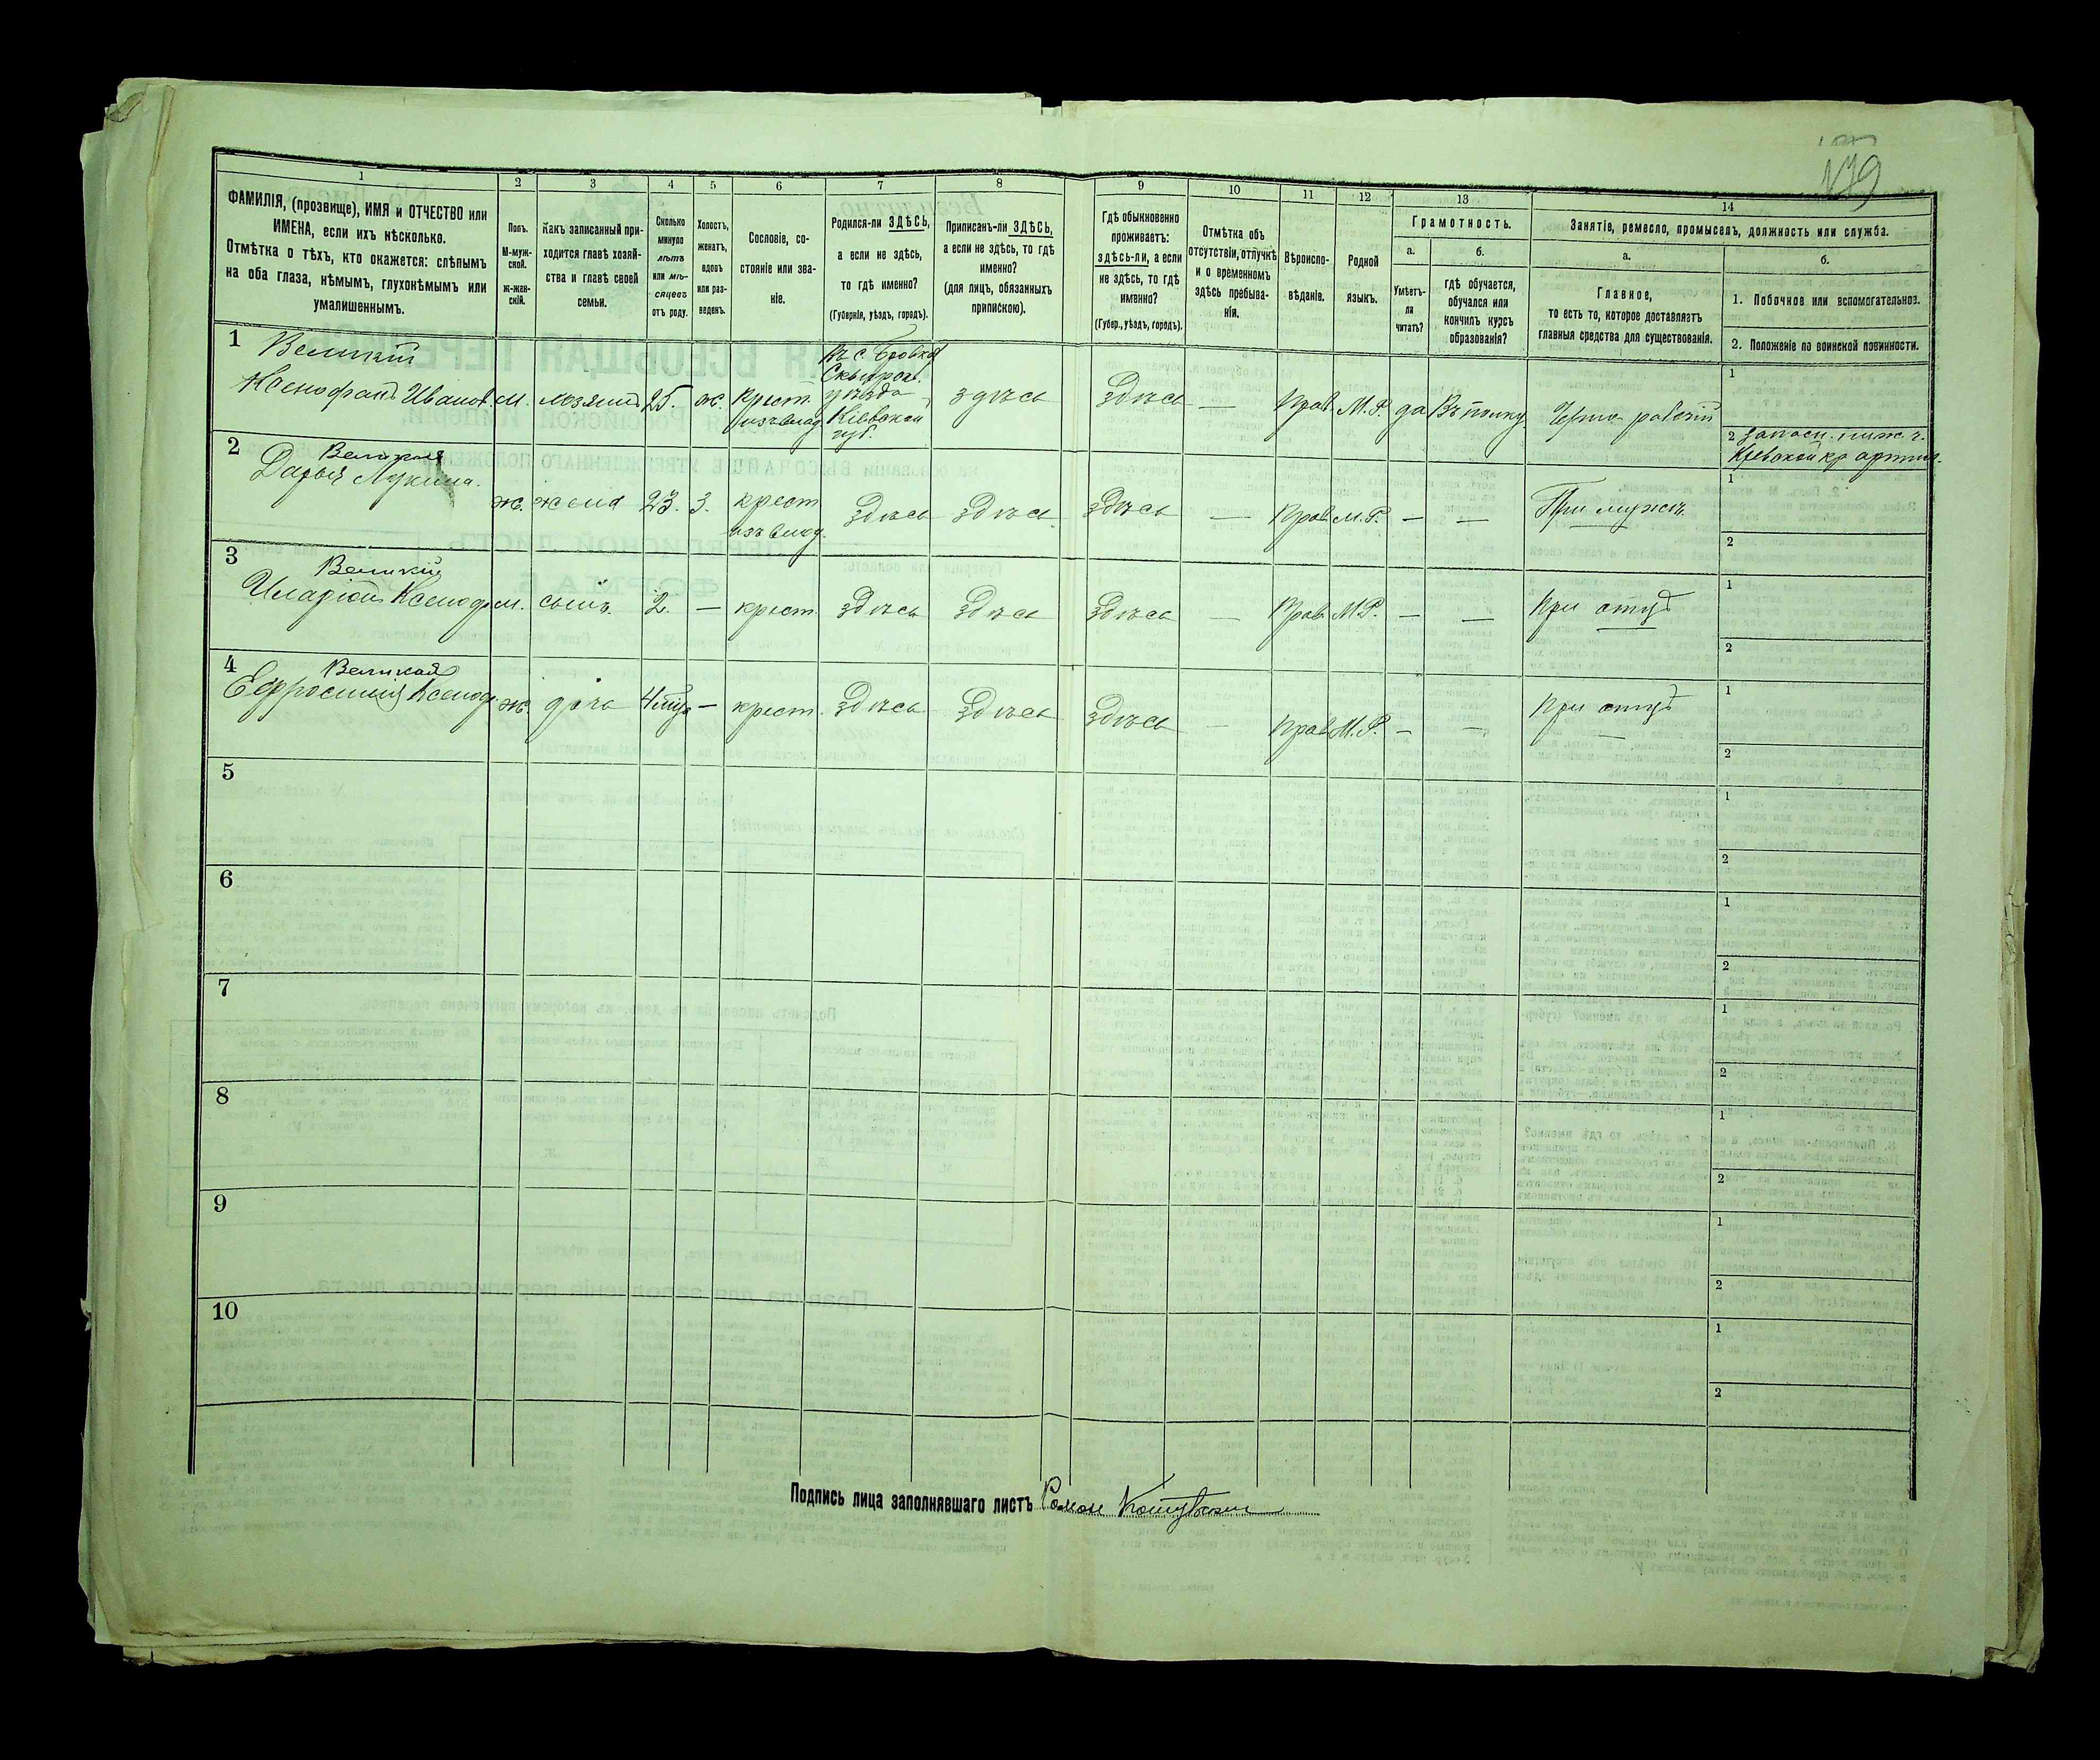 179
1
2
3
4
5
6
7
8
9
10
11
12
13
14
ФАМИЛІЯ, (прозвище), ИМЯ и ОТЧЕСТВО или
ИМЕНА, если ихъ нѣсколько.
Отмѣтка о тѣхъ, кто окажется: слѣпымъ
на оба глаза, нѣмымъ, глухонѣмымъ или
умалишеннымъ.
Полъ.
М-муж-
ской.
ж-жен-
скій.
Какъ записанный при-
ходится главѣ хозяй-
ства и главѣ своей
семьи.
Сколько
минуло
лѣтъ
или мѣ-
сяцевъ
отъ роду.
Холостъ,
женатъ,
вдовъ
или раз-
веденъ.
Сословіе, со-
стояніе или зва-
ніе.
Родился-ли ЗДѢСЬ,
а если не здѣсь,
то гдѣ именно?
(Губернія, уѣздъ, городъ).
Приписанъ-ли ЗДѢСЬ,
а если не здѣсь, то гдѣ
именно?
(для лицъ, обязанныхъ
припискою).
Гдѣ обыкновенно
проживаетъ:
здѣсь-ли, а если
не здѣсь, то гдѣ
именно?
(Губер., уѣздъ, городъ).
Отмѣтка объ
отсутствіи, отлучкѣ
и о временномъ
здѣсь пребыва-
ніи.
Вѣроиспо-
вѣданіе.
Родной
языкъ.
Грамотность.
а.
Умѣетъ-
ли
читать?
б.
гдѣ обучается,
обучался или
кончилъ курсъ
образованія?
Занятіе, ремесло, промыселъ, должность или служба.
а.
Главное,
то есть то, которое доставляетъ
главныя средства для существованія.
б.
1. Побочное или вспомогательное.
2. Положеніе по воинской повинности.
1
Великій
Ксенофонтъ Иванов.
м.
хозяинъ
25
ж.
крест.
изъ влад.
Въ с. Бровках
Сквирск.
уѣзда
Кіевской
губ.
здѣсь
Здѣсь
—
Прав.
М.Р.
да
Въ полку
Черно-рабочій
1
2 Запасн. ниж. ч.
Кіевской кр. артил.
2
Великая
Дарья Лукина.
ж.
жена
23.
З.
крест.
изъ влад.
Здѣсь
Здѣсь
Здѣсь
—
Прав.
М.Р.
—
—
При мужѣ.
1
2
3
Великій
Иларіонъ Ксеноф.
м.
сынъ.
2.
—
крест.
Здѣсь
Здѣсь
Здѣсь
—
Прав.
М.Р.
—
—
При отцѣ
1
2
4
Великая
Ефросинія Ксеноф.
ж.
дочь
—
крест.
Здѣсь
Здѣсь
Здѣсь
—
Прав.
М.Р.
—
—
При отцѣ
1
2
5
1
2
6
1
2
7
1
2
8
1
2
9
1
2
10
1
2
Подпись лица заполнявшаго листъ Роман